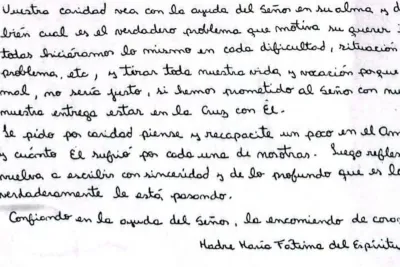 Vuestra caridad vea con la ayuda del Señor en su alma y d
bién cual es el verdadero problema que motiva su querer i
todas hiciéramos lo mismo en cada dificultad, situación
problema, etc, y tirar toda nuestra vida y vocación porque
mal, no sería justo, si hemos prometido al Señor con nu
nuestra entrega estar en la Cruz con Él.
Le pido por caridad piense y recapacite un poco en el Am
y cuánto Él sufrió por cada una de nosotras. Luego reflex
vuelva a escribir con sinceridad y de lo profundo que es l
verdaderamente le está pasando.
Confiando en la ayuda del Señor, la encomiendo de coraz
Madre María Fátima del Espíritu